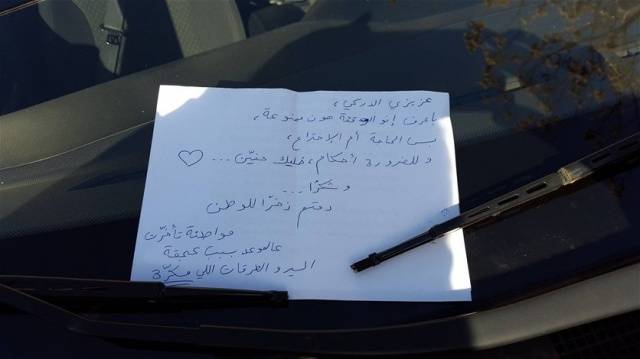 عزيزي الدركي،
بعرف إنو الوقفة هون ممنوعة،
بس الحاجة أم الإختراع،
و للضرورة أحكام، خليك حنيّن...
و شكرًا...
دمتم ذخرًا للوطن
مواطنة تأخرت
عالموعد بسبب عجقة
السير و الطرقات اللي مسكّرة